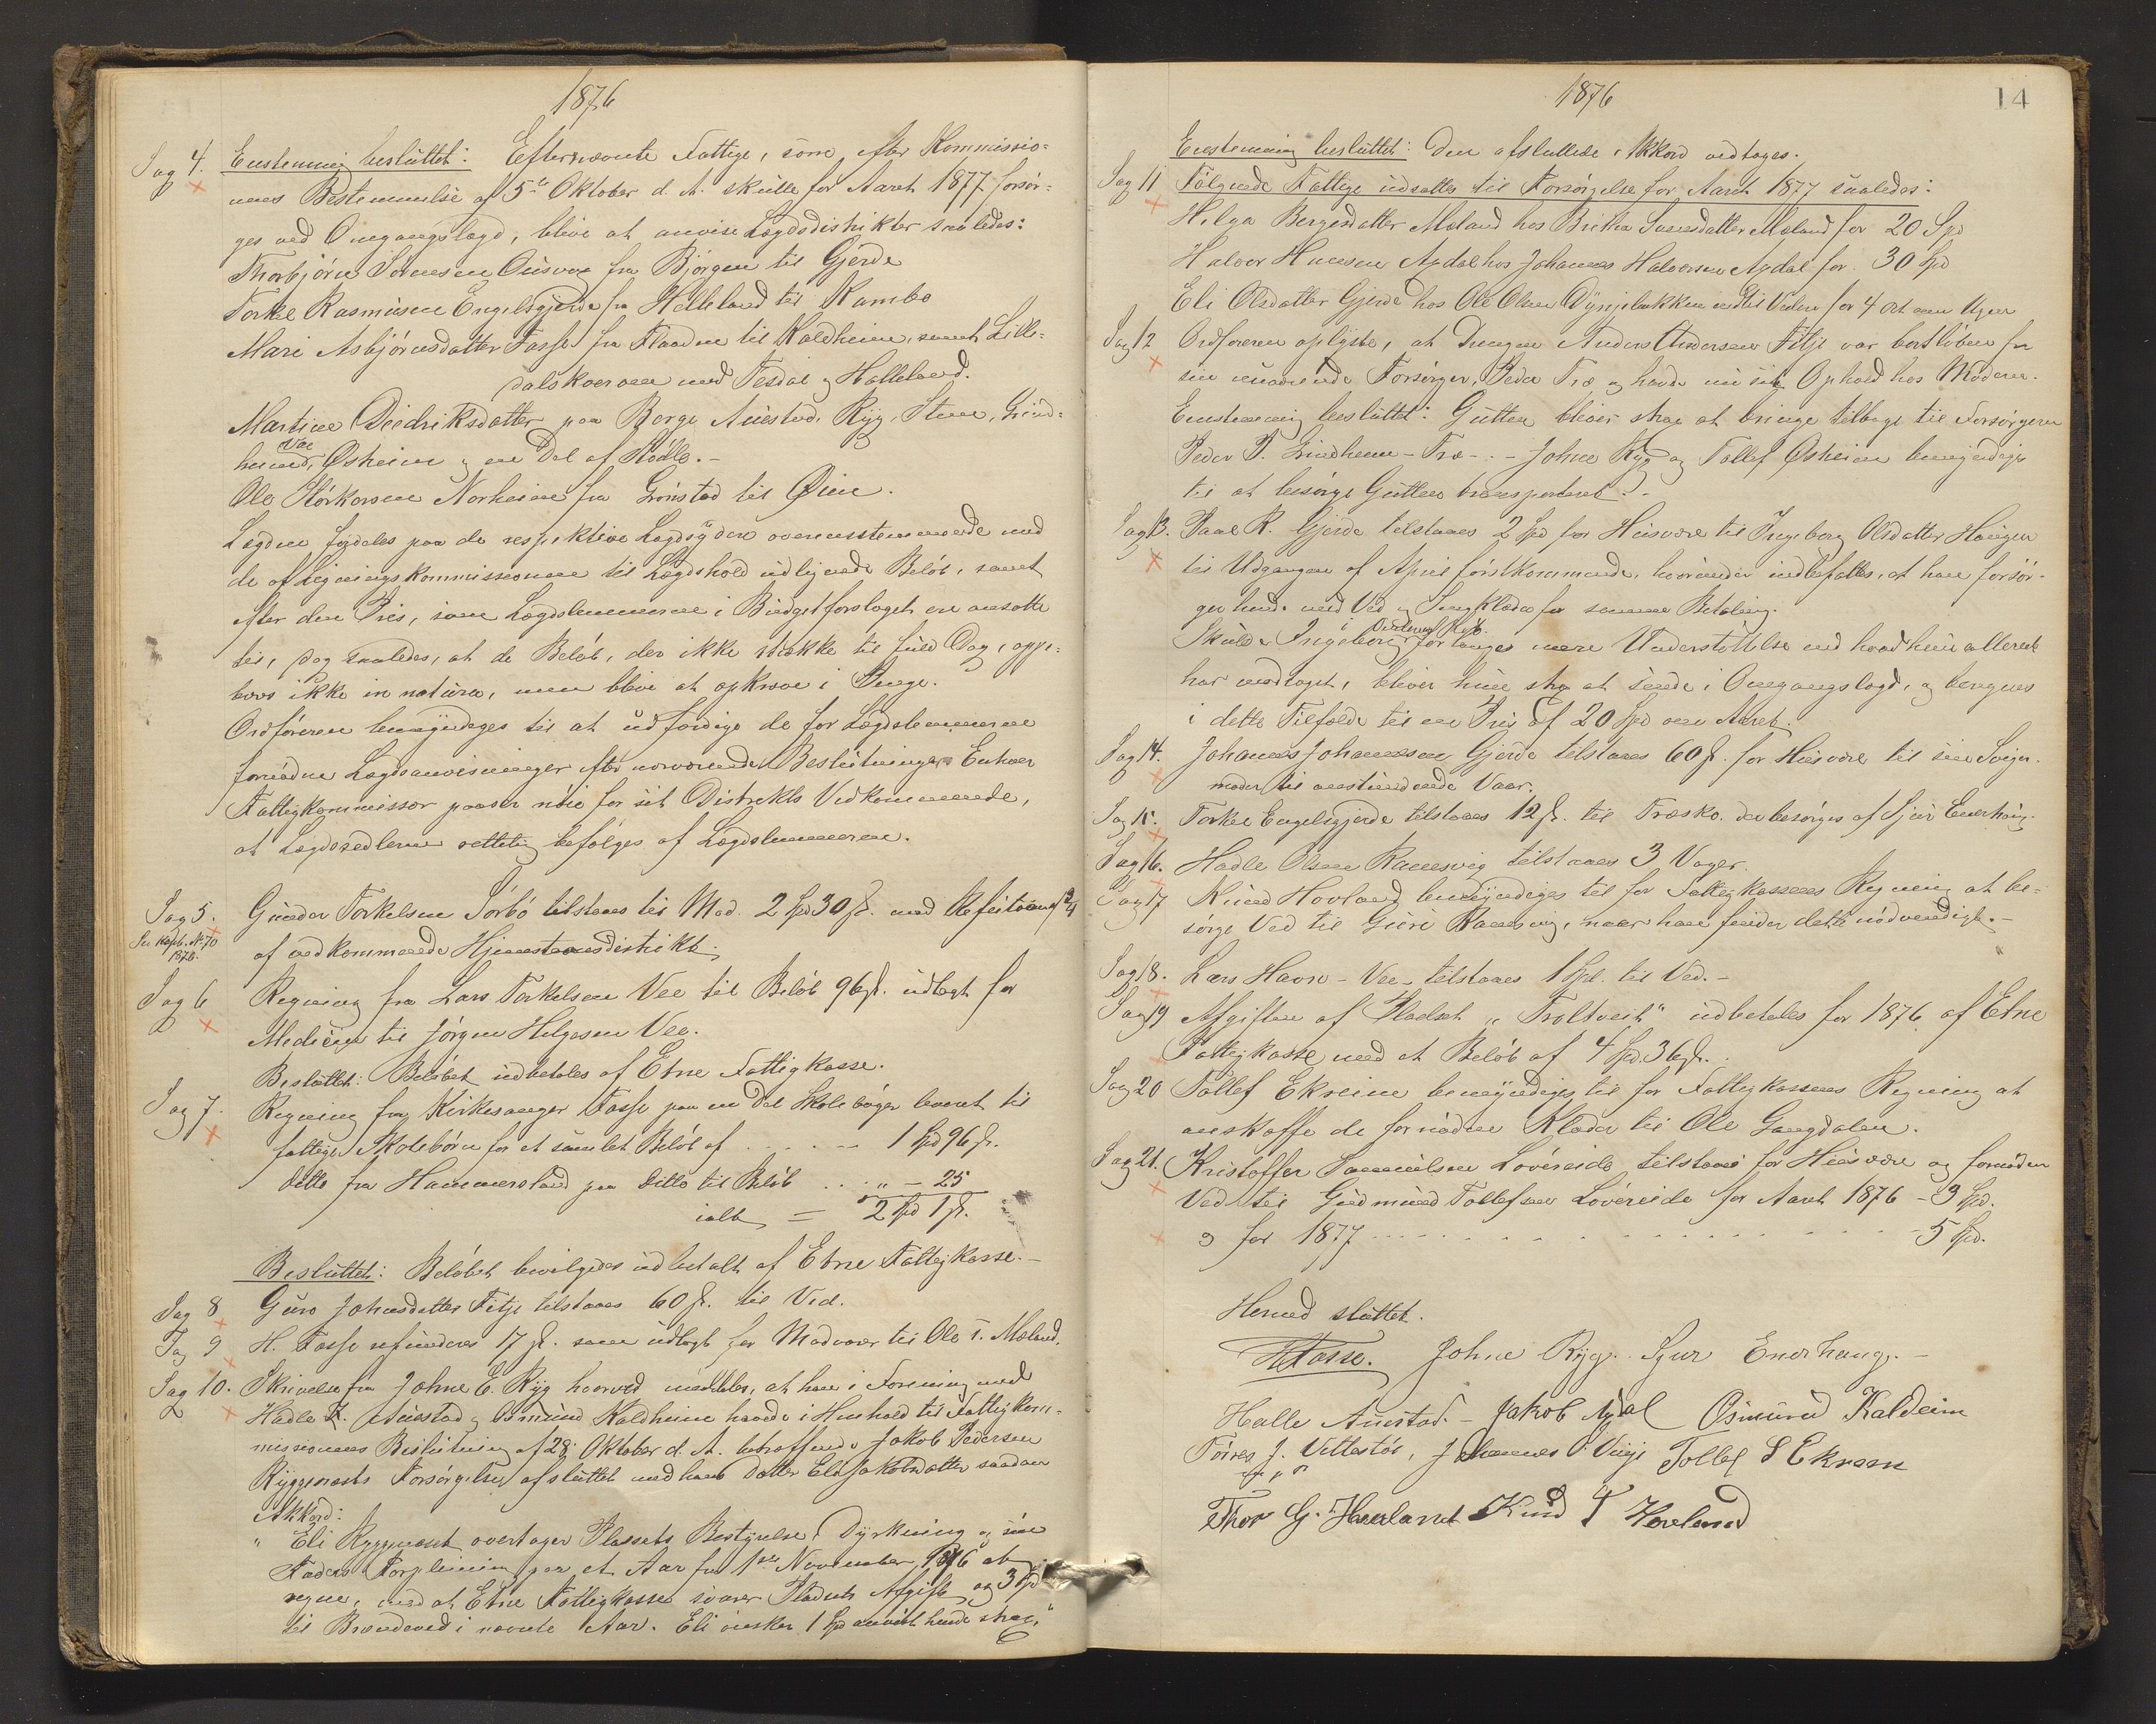 1876
Sag 4. Enstemmig besluttet: Efternævnte Fattige, som efter Kommissio-
nens Bestemmelse af 5te Oktober d. A. skulle for Aaret 1877 forsør-
ges ved Omgangslægd, blive at anvise Lægdsdistrikter saaledes:
Thorbjörn Sörensen fra Bjørgen til Gjerde
Torkel Rasmusen Engelsgjerde fra Helleland til Rambe
Mari Asbjörnsdatter Fasse fra Flaaden til Kaldheim, samt Lille-
dalskvernen med Tesdal og Halleland.
Martine Diedriksdatter paa Berge, Austad, Ryg, Stene, Grind-
heim, Vae, Øsheim og en Del af Hødle.-
Ole Størkorsen Norheim fra Grønstad til Øien.
Lægden fordeles paa de respektive Lægdsydere overensstemmende med
de af Ligningskommissionen til Lægdshold udlignede Beløb, samt
efter den Pris, som Lægdslemmerne i Budgetforslaget ere ansatte
til, dog saaledes, at de Beløb, der ikke række til fuld Dag, oppe-
bæres ikke in natura, men blive at opkræve i Penge.
Ordføreren bemyndiges til at udfærdige de for Lægdslemmerne
fornødne Lægdsanvisninger efter nærværende Beslutninger. Enhver
Fattigkommissær paaser nøie for sit Distrikts Vedkommende,
at Lægdssedlerne rettelig befølges af Lægdslemmerne.
Sag 5. Gunder Torkelsen Sørbø tilstaaes til Mad 2 Spd 30 ß. med Refusion 3/4
Se Kopb. No 70 1876. af vedkommende Hjemstavnsdistrikt.
Sag 6 Regning fra Lars Torkelsen Vee til Beløb 96 ß. udlagt for
Medicin til Jørgen Helgesen Vee.
Besluttet: Beløbet udbetales af Etne Fattigkasse.
Sag 7. Regning fra Kirkesanger Fasse paa en Del Skolebøger leveret til
fattige Skolebørn for et samlet Beløb af . . . . - 1 Spd 96 ß.
ditto fra Hammersland paa ditto til Beløb . . . " - 25
ialt = 2 Spd 1 ß.
Besluttet: Beløbet bevilgedes udbetalt af Etne Fattigkasse.-
Sag 8 Guro Johnsdatter Fitje tilstaaes 60 ß. til Ved.
Sag 9 H. Fasse refunderes 17 ß. som udlagt for Madvarer til Ole T. Mæland.
Sag 10. Skrivelse fra Johne E. Ryg hvorved meddeles, at han i Forening med
Hadle K. Austad og Osmund Kaldheim havde i Henhold til Fattigkom-
missionens Beslutning af 28. Oktober d. A. betræffende Jakob Pedersen
Ryggenæsets Forsørgelse afsluttet med hans Datter Eli Jakobsdatter saadan
Akkord:
" Eli Ryggenæset overtager Pladsets Bestyrelse, Dyrkning og sin
Faders Forpleining paa et Aar fra 1ste November 1876 at
regne, med at Etne Fattigkasse svarer Pladsets Afgift og 3 Spd
til Brændeved i nævnte Aar. Eli ønsker 1 Spd anvist hende strax."
1876
14
Enstemmig besluttet: Den afsluttede Akkord vedtages.
Sag 11 Følgende Fattige udsættes til Forsørgelse for Aaret 1877 saaledes:
Helga Bergesdatter Mæland hos Britha Larsdatter Mæland for 20 Spd
Halvor Hansen Axdal hos Johannes Halvorsen Axdal for 30 Spd
Eli Olsdatter Gjerde hos Ole Olsen Dynjebakken indtil Videre for 4 Ort om Ugen
Sag 12 Ordføreren oplyste, at Drengen Anders Andersen Fitje var bortløben fra
sin nuværende Forsørger, Peder Træ og havde nu sit Ophold hos Moderen.
Enstemmig besluttet: Gutten bliver strax at bringe tilbage til Forsørgeren
Peder P. Grindheim - Træ -.- Johne Ryg og Tollef Øsheim bemyndiges
til at besørge Gutten transporteret.-
Sag 13. Paal R. Gjerde tilstaaes 2 Spd for Husvære til Ingeborg Olsdatter Haugen
til Udgangen af April førstkommende, hvorunder indbefattes, at han forsør-
ger hende med Ved og Sengklæder for samme Betaling.
Skulde Ingeborg i forlanges mere Understøttelse end hvad hun allerede
har modtaget, bliver hun strax at sende i Omgangslægd, og beregnes
i dette Tilfælde til en Pris af 20 Spd om Aaret.
Sag 14. Johannes Johannesen Gjerde tilstaaes 60 ß. for Husvære til sin Sviger-
moder til anstundende Vaar.
Sag 15. Torkel Engelsgjerde tilstaaes 12 ß. til Træsko. der besørges af Sjur Enerhaug.
Sag 16. Hadle Olsen Ramsvig tilstaaes 3 Voger.
Sag 17 Knud Hovland bemyndiges til for Fattigkassens Regning at be-
sørge Ved til Guri Ramsvig, naar han finder dette nødvendigt.-
Sag 18. Lars Havre - Vee - tilstaaes 1 Spd. til Ved.-
Sag 19 Afgiften af Pladset "Troltveit" udbetales for 1876 af Etne
Fattigkasse med et Beløb af 4 Spd. 36 ß.
Sag 20 Tollef Ekreim bemyndiges til for Fattigkassens Regning at
anskaffe de fornødne Klæder til Ole Gangdalen.
Sag 21. Kristoffer Samuelsen Løvereide tilstaaes for Husvære og fornøden
Ved til Gudmund Tollefsen Løvereide for Aaret 1876 - 3 Spd.
og for 1877 . . . . . . . . . . . . . - 5 Spd.
Hermed sluttet.
HFasse. Johne Ryg. Sjur Enerhaug.-
Halle Austad.- Jakob Axdal Osmund Kaldeim
Tørres J. Vettestøl, Johannes O. Vinje Tollef S Ekreim
Thor G. Haaland Knud T Hovland